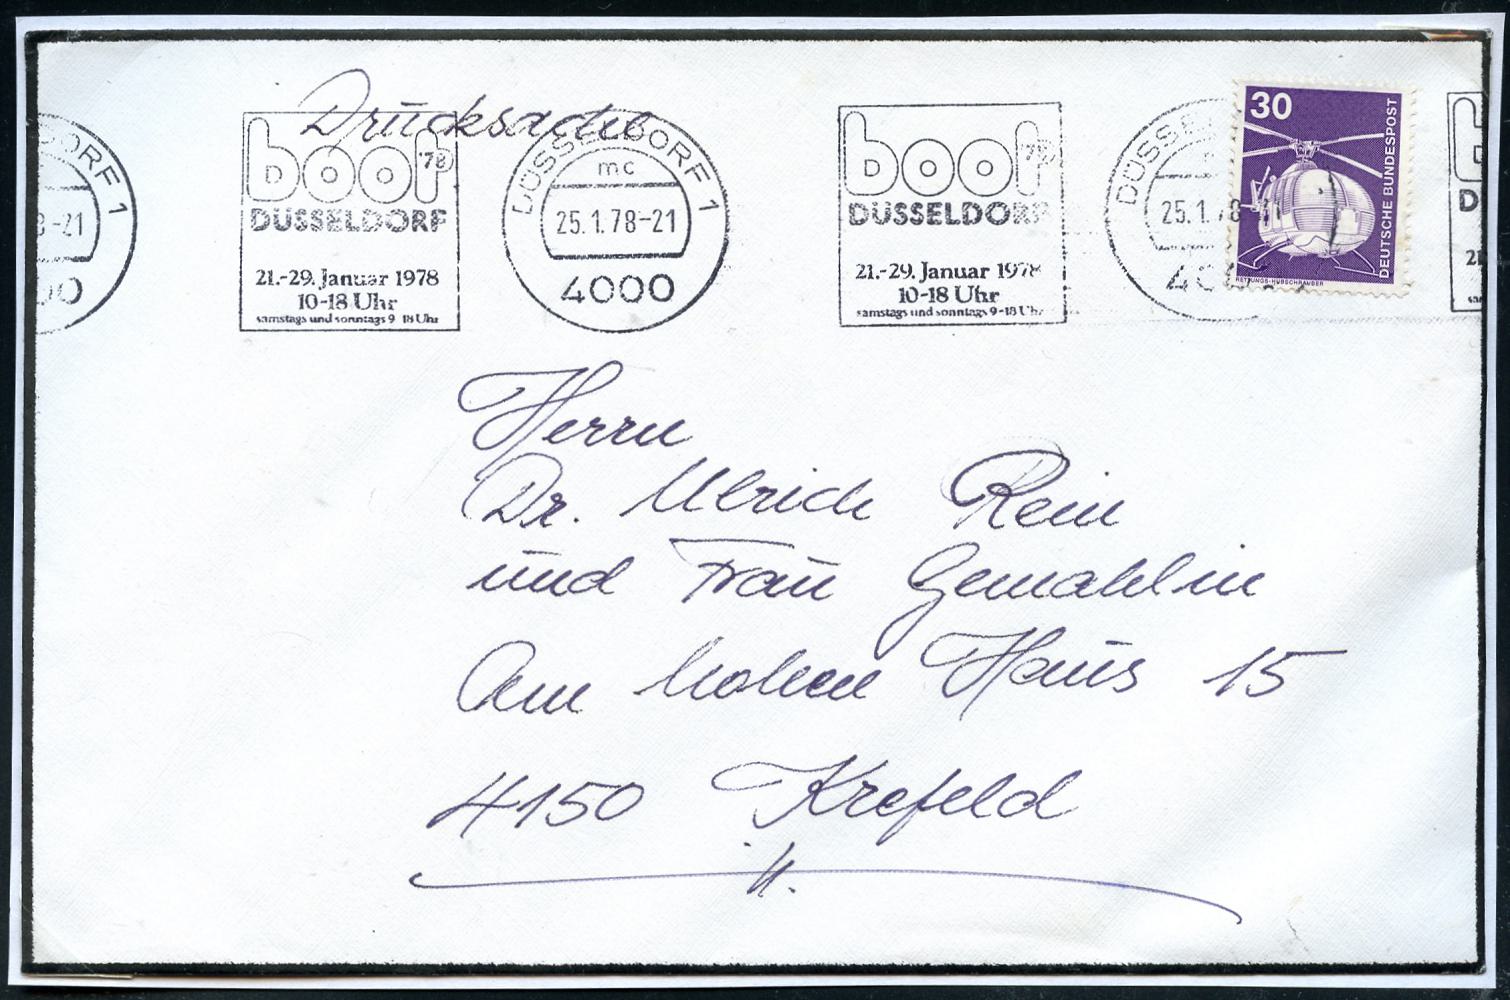 Drucksache
DÜSSELDORF 1
-21
boot '78
DÜSSELDORF
21.-29. Januar 1978
10-18 Uhr
samstags und sonntags 9-18 Uhr
DÜSSELDORF 1
mc
25.1.78-21
4000
boot '78
DÜSSELDORF
21.-29. Januar 1978
10-18 Uhr
samstags und sonntags 9-18 Uhr
25.1.78
30
DEUTSCHE BUNDESPOST
RETTUNGS-HUBSCHRAUBER
Herrn
Dr. Ulrich Rein
und Frau Gemahlin
Am hohen Haus 15
4150 Krefeld